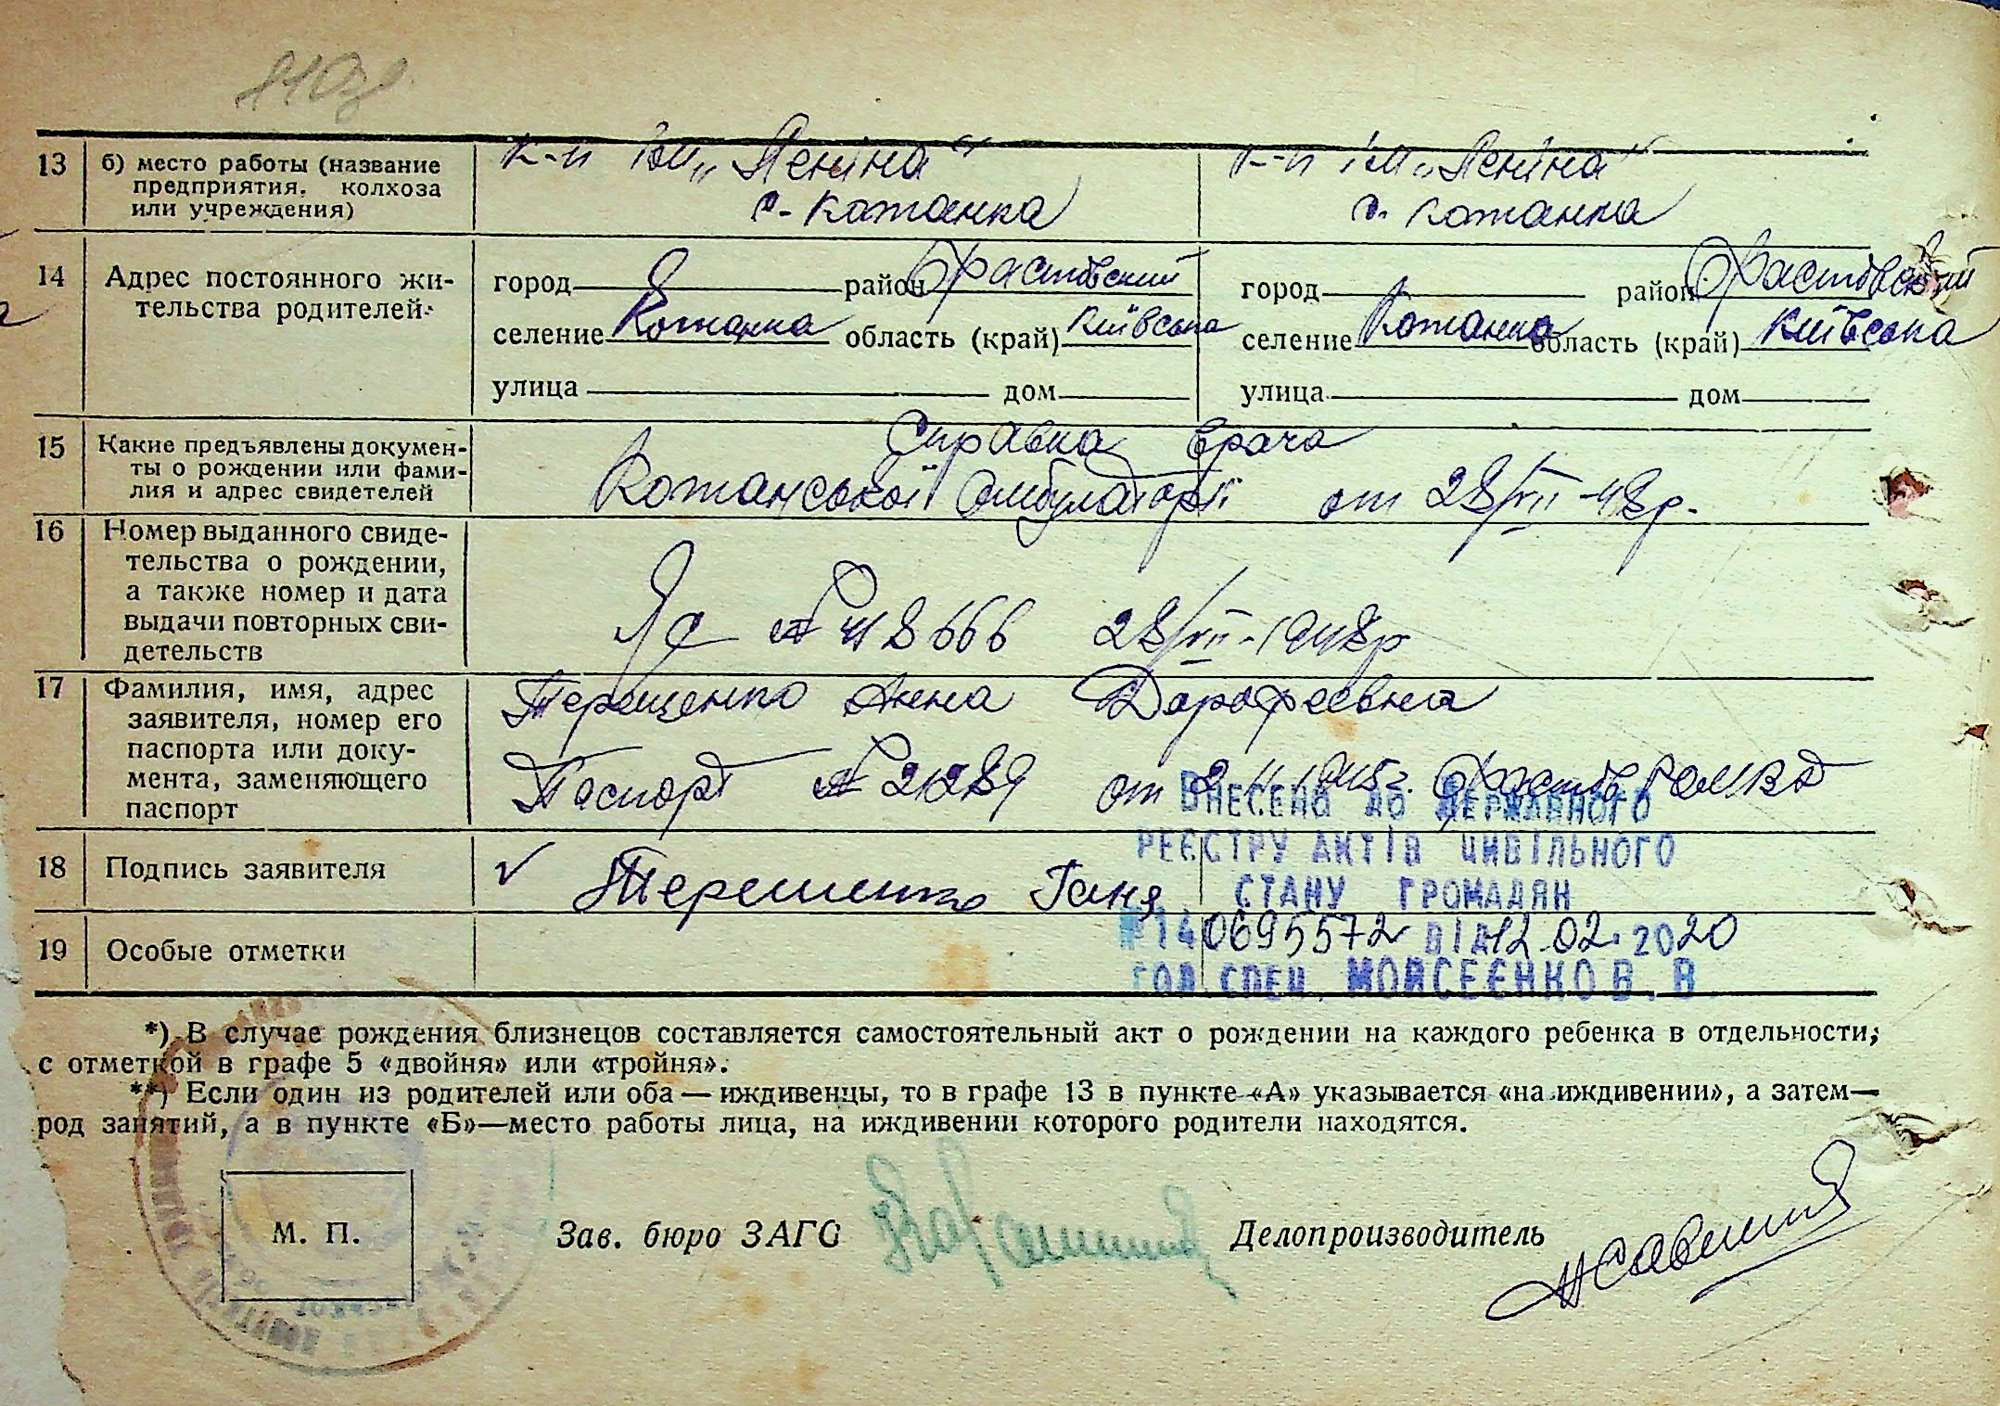 13 б) место работы (название
предприятия, колхоза
или учреждения)
к-п ім „Леніна“
с. Кожанка
к-п ім „Леніна“
с. Кожанка
14 Адрес постоянного жи-
тельства родителей
город район Фастовский
селение Кожанка область (край) Київська
улица дом
город район Фастовский
селение Кожанка область (край) Київська
улица дом
15 Какие предъявлены докумен-
ты о рождении или фами-
лия и адрес свидетелей
Справка врача
Кожанської амбулаторії от 28/VII-48р.
16 Номер выданного свиде-
тельства о рождении,
а также номер и дата
выдачи повторных сви-
детельств
ЯС № 418666 28/VII-1948р
17 Фамилия, имя, адрес
заявителя, номер его
паспорта или доку-
мента, заменяющего
паспорт
Терещенко Анна Дорофеевна
Паспорт № 21289 от 2. 1945г.
18 Подпись заявителя
✓ Терещенко Ганя
19 Особые отметки
ВНЕСЕНО ДО ДЕРЖАВНОГО
РЕЄСТРУ АКТІВ ЦИВІЛЬНОГО
СТАНУ ГРОМАДЯН
№ 140695572 ВІД 12.02.2020
ГОЛ СПЕЦ. МОЙСЕЄНКО В. В.
*) В случае рождения близнецов составляется самостоятельный акт о рождении на каждого ребенка в отдельности,
с отметкой в графе 5 «двойня» или «тройня».
**) Если один из родителей или оба — иждивенцы, то в графе 13 в пункте «А» указывается «на иждивении», а затем—
род занятий, а в пункте «Б»—место работы лица, на иждивении которого родители находятся.
М. П.
Зав. бюро ЗАГС
Делопроизводитель